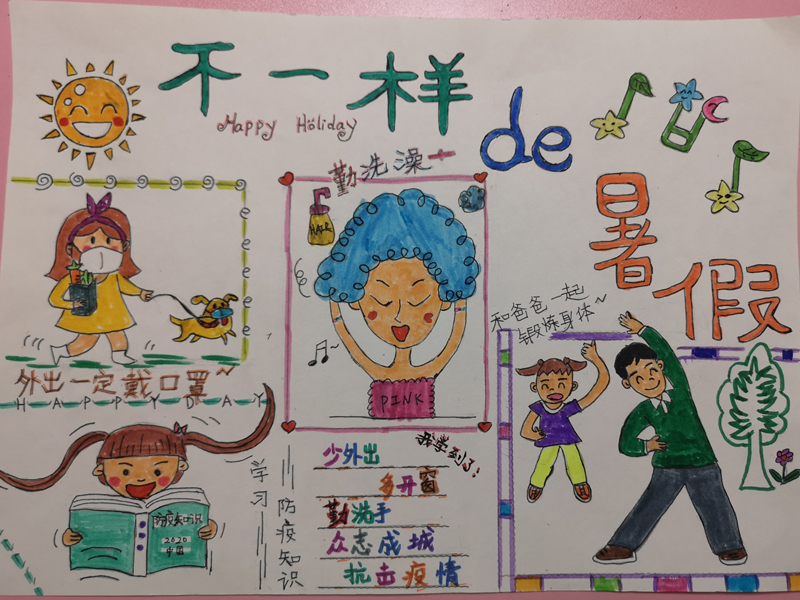 不一样
Happy Holiday
de
暑假
勤洗澡
HAIR
PINK
外出一定戴口罩~
HAPPYDAY
和爸爸一起
锻炼身体~
防疫知识
2020
中国
学习
防疫知识
我学到了:
少外出
多开窗
勤洗手
众志成城
抗击疫情